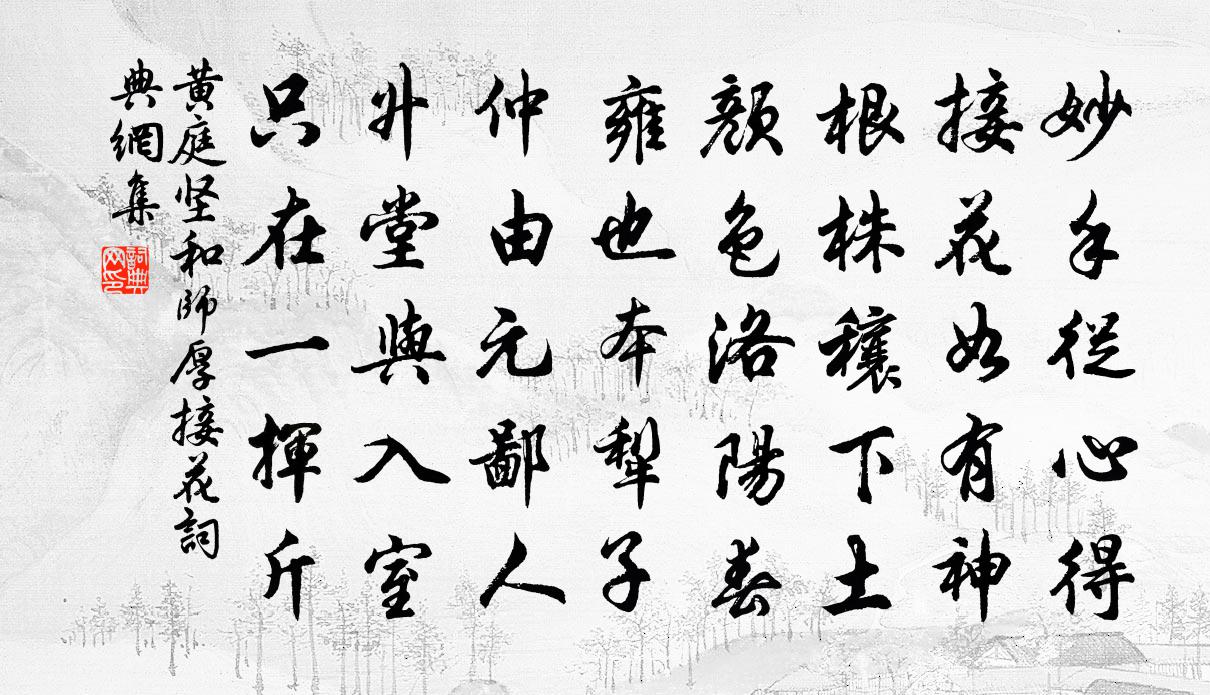 妙手从心得
接花如有神
根株穰下土
顏色洛陽春
雍也本犁子
仲由元鄙人
升堂與入室
只在一揮斤
黄庭坚和師厚接花詞
典網集
詞典
网印